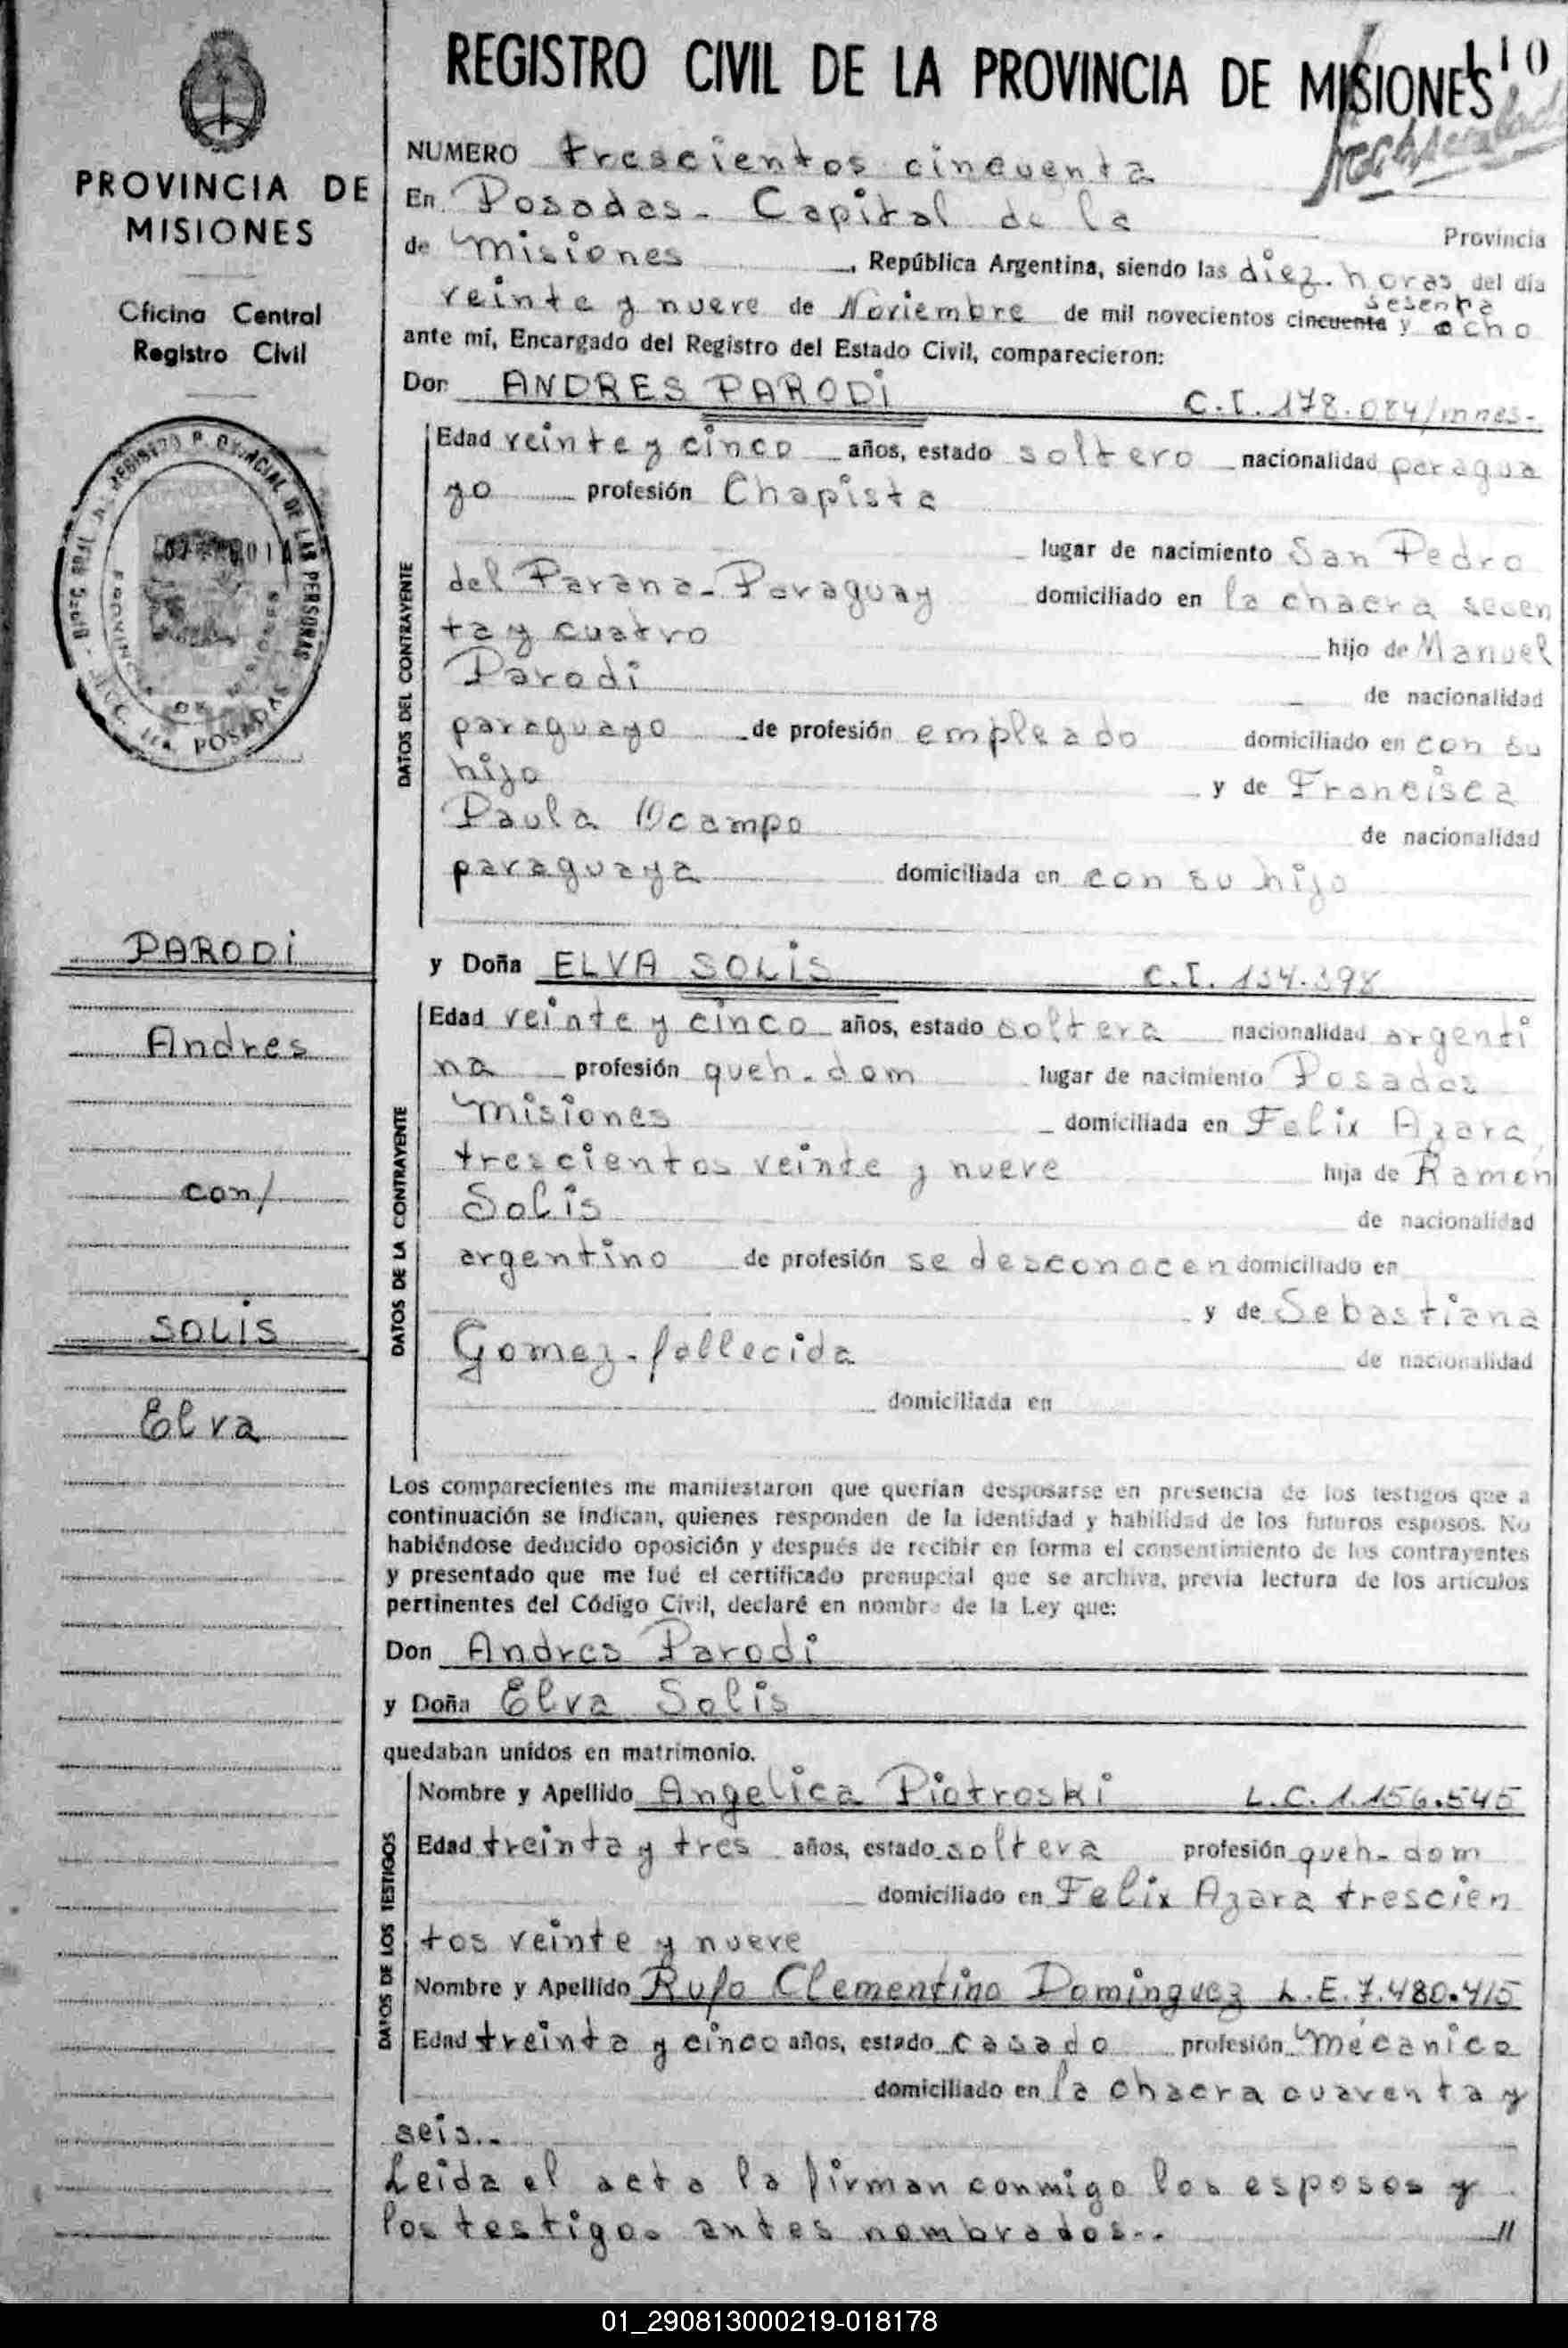 REGISTRO CIVIL DE LA PROVINCIA DE MISIONES
110
PROVINCIA DE
MISIONES
Oficina Central
Registro Civil
PARODI
Andres
con/
SOLIS
Elva
NUMERO trescientos cincuenta
En Posadas - Capital de la Provincia
de Misiones, República Argentina, siendo las diez horas del día
sesenta
veinte y nueve de Noviembre de mil novecientos cincuenta y ocho
ante mí, Encargado del Registro del Estado Civil, comparecieron:
Don ANDRES PARODI C.I. 178.084/mnes-
DATOS DEL CONTRAYENTE
Edad veinte y cinco años, estado soltero nacionalidad paragua
yo profesión Chapista
lugar de nacimiento San Pedro
del Parana - Paraguay domiciliado en la chacra secen
ta y cuatro hijo de Manuel
Parodi de nacionalidad
paraguayo de profesión empleado domiciliado en con su
hijo y de Francisca
Paula Ocampo de nacionalidad
paraguaya domiciliada en con su hijo
y Doña ELVA SOLIS C.I. 134.398
DATOS DE LA CONTRAYENTE
Edad veinte y cinco años, estado soltera nacionalidad argenti
na profesión queh. dom lugar de nacimiento Posadas
Misiones domiciliada en Felix Azara,
trescientos veinte y nueve hija de Ramon
Solis de nacionalidad
argentino de profesión se desconocen domiciliado en
y de Sebastiana
Gomez - fallecida de nacionalidad
domiciliada en
Los comparecientes me manifestaron que querían desposarse en presencia de los testigos que a
continuación se indican, quienes responden de la identidad y habilidad de los futuros esposos. No
habiéndose deducido oposición y después de recibir en forma el consentimiento de los contrayentes
y presentado que me fué el certificado prenupcial que se archiva, previa lectura de los artículos
pertinentes del Código Civil, declaré en nombre de la Ley que:
Don Andres Parodi
y Doña Elva Solis
quedaban unidos en matrimonio.
DATOS DE LOS TESTIGOS
Nombre y Apellido Angelica Piotroski L.C. 1.156.545
Edad treinta y tres años, estado soltera profesión queh. dom
domiciliado en Felix Azara trescien
tos veinte y nueve
Nombre y Apellido Rufo Clementino Dominguez L.E. 7.480.415
Edad treinta y cinco años, estado casado profesión mécanico
domiciliado en la chacra cuarenta y
seis..
Leida el acta la firman conmigo los esposos y
los testigos antes nombrados.. //
01_290813000219-018178